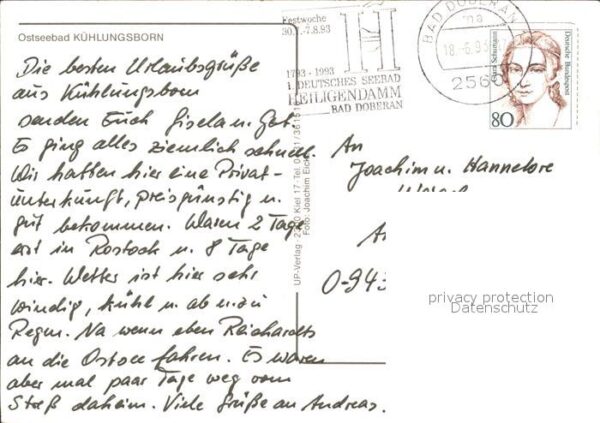 Ostseebad KÜHLUNGSBORN
Die besten Urlaubsgrüße
aus Kühlungsborn
senden Euch Gisela u. Got.
Es ging alles ziemlich schnell.
Wir hatten hier eine Privat-
unterkunft, preisgünstig u.
gut bekommen. Waren 2 Tage
erst in Rostock u. 8 Tage
hier. Wetter ist hier sehr
windig, kühl u. ab u. zu
Regen. Na wenn eben Reichardts
an die Ostsee fahren. Es waren
aber mal paar Tage weg vom
Streß daheim. Viele Grüße an Andreas.
UP-Verlag Kiel 17 · Tel.
Foto: Joachim
Festwoche
30.7.-7.8.93
1793 - 1993
1. DEUTSCHES SEEBAD
HEILIGENDAMM
BAD DOBERAN
BAD DOBERAN
ma
2560
Clara Schumann
Deutsche Bundespost
80
An
Joachim u. Hannelore
O-943
privacy protection
Datenschutz